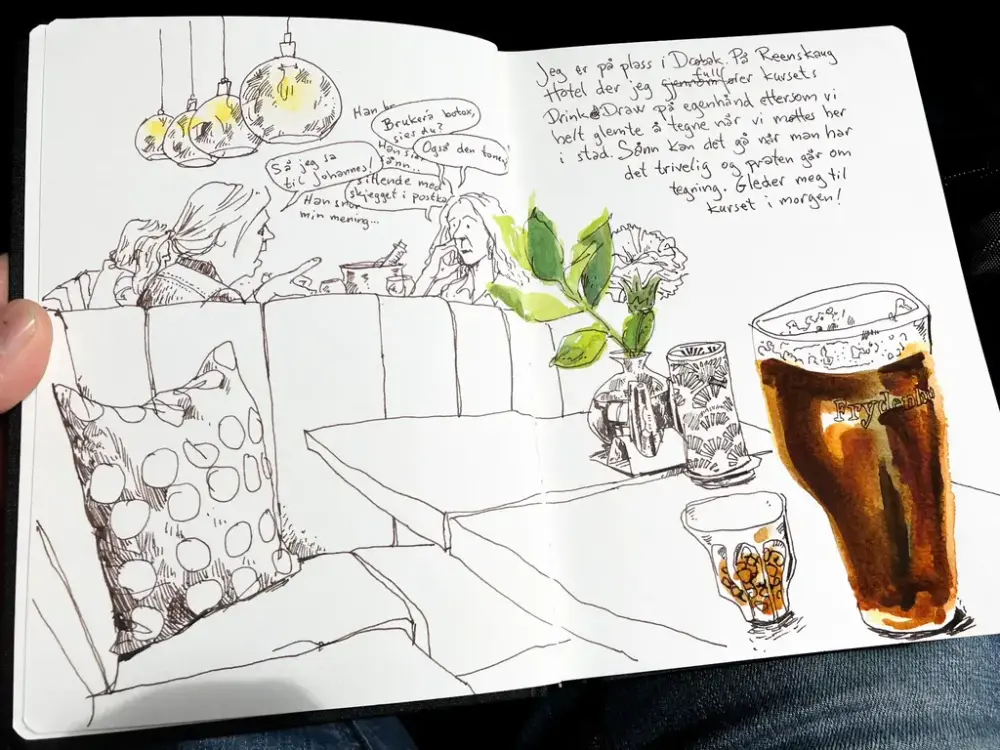 Han
Brukera botox,
sier du?
Han sier
sånn...
Også den tanen!
Så jeg sa
til Johannes!
sittende med
skjegget i postka
Han snur
min mening...
Jeg er på plass i Drøbak. På Reenskaug
Hotel der jeg gjennom fullfører kursets
Drink&Draw på egenhånd ettersom vi
helt glemte å tegne når vi møttes her
i stad. Sånn kan det gå når man har
det trivelig og praten går om
tegning. Gleder meg til
kurset i morgen!
Frydenlu